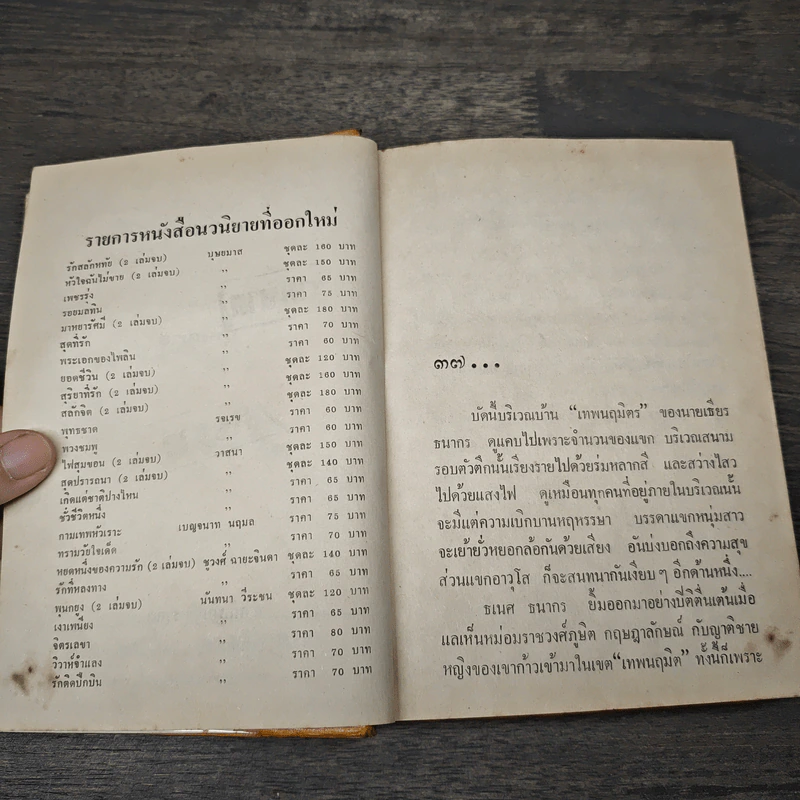 รายการหนังสือนวนิยายที่ออกใหม่
รักสลักหทัย (2 เล่มจบ) บุษยมาส ชุดละ 160 บาท
หัวใจฉันไม่ขาย (2 เล่มจบ) ,, ชุดละ 150 บาท
เพชรรุ่ง ,, ราคา 65 บาท
รอยมลทิน ,, ราคา 75 บาท
มาหยารัศมี (2 เล่มจบ) ,, ชุดละ 180 บาท
สุดที่รัก ,, ราคา 70 บาท
พระเอกของไพลิน ,, ราคา 60 บาท
ยอดชีวิน (2 เล่มจบ) ,, ชุดละ 120 บาท
สุริยาที่รัก (2 เล่มจบ) ,, ชุดละ 160 บาท
สลักจิต (2 เล่มจบ) ,, ชุดละ 180 บาท
พุทธชาด รจเรข ราคา 60 บาท
พวงชมพู ,, ราคา 60 บาท
ไฟสุมขอน (2 เล่มจบ) วาสนา ชุดละ 150 บาท
สุดปรารถนา (2 เล่มจบ) ,, ชุดละ 140 บาท
เกิดแต่ชาติปางไหน ,, ราคา 65 บาท
ชั่วชีวิตหนึ่ง ,, ราคา 65 บาท
กามเทพหัวเราะ เบญจนาท นฤมล ราคา 75 บาท
ทรามวัยใจเด็ด ,, ราคา 70 บาท
หยดหนึ่งของความรัก (2 เล่มจบ) ชูวงศ์ ฉายะจินดา ชุดละ 140 บาท
รักที่หลงทาง ,, ราคา 65 บาท
พุนกยูง (2 เล่มจบ) นันทนา วีระชน ชุดละ 120 บาท
เงาเพนียง ,, ราคา 65 บาท
จิตรเลขา ,, ราคา 80 บาท
วิวาห์จำแลง ,, ราคา 70 บาท
รักติดปีกบิน ,, ราคา 70 บาท
๓๗...
บัดนี้บริเวณบ้าน “เทพนฤมิตร” ของนายเธียร
ธนากร ดูแคบไปเพราะจำนวนของแขก บริเวณสนาม
รอบตัวตึกนั้นเรียงรายไปด้วยร่มหลากสี และสว่างไสว
ไปด้วยแสงไฟ ดูเหมือนทุกคนที่อยู่ภายในบริเวณนั้น
จะมีแต่ความเบิกบานหฤหรรษา บรรดาแขกหนุ่มสาว
จะเย้ายั่วหยอกล้อกันด้วยเสียง อันบ่งบอกถึงความสุข
ส่วนแขกอาวุโส ก็จะสนทนากันเงียบๆ อีกด้านหนึ่ง....
ธเนศ ธนากร ยิ้มออกมาอย่างปีติตื่นเต้นเมื่อ
แลเห็นหม่อมราชวงศ์ภูษิต กฤษฎาลักษณ์ กับญาติชาย
หญิงของเขาก้าวเข้ามาในเขต“เทพนฤมิต” ทั้งนี้ก็เพราะ